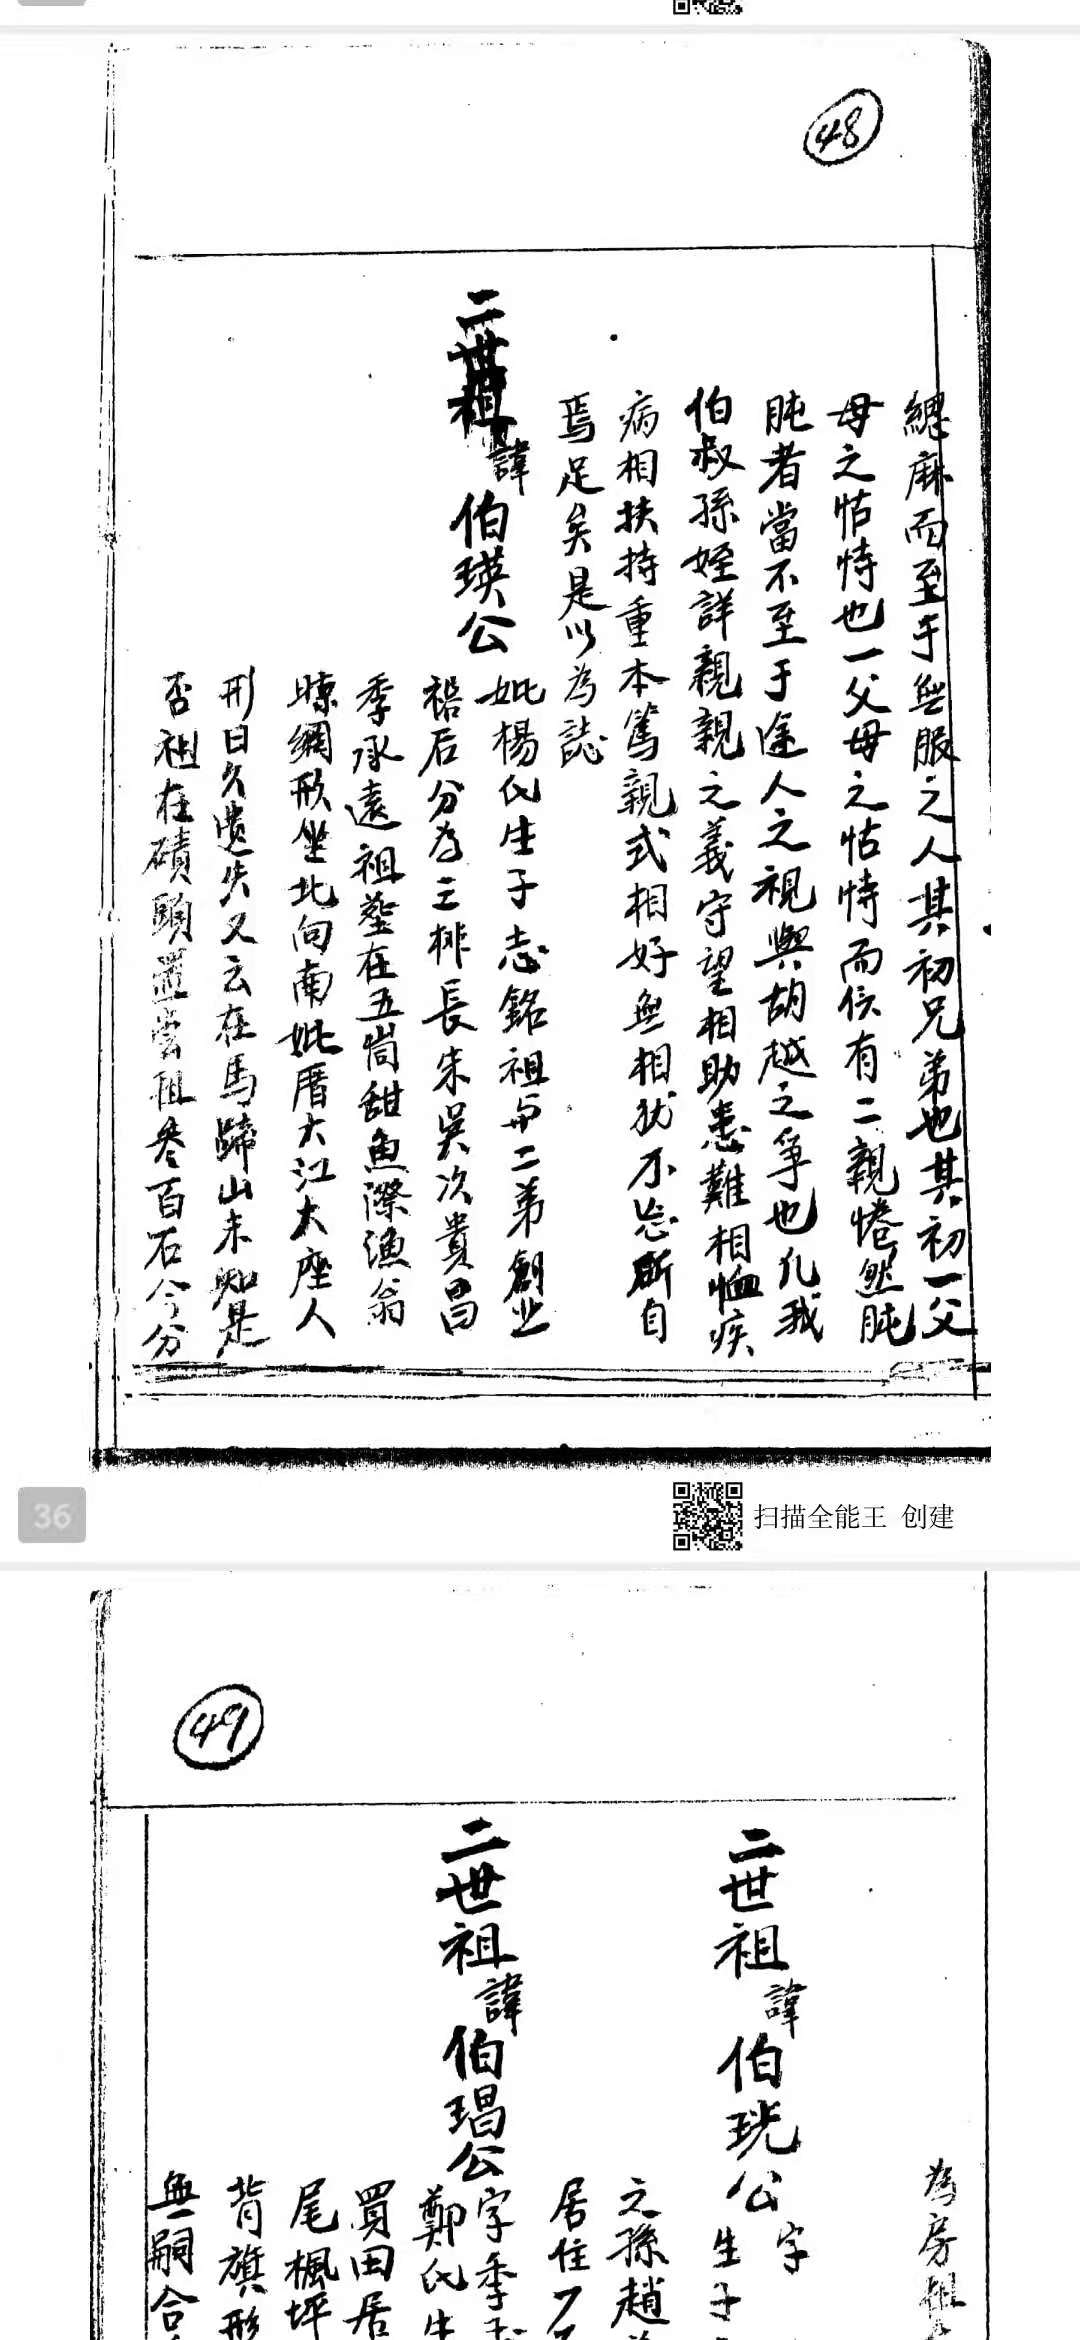 48
緦麻而至于無服之人其初兄弟也其初一父
母之怙恃也一父母之怙恃而佀有二親惓然肫
肫者當不至于途人之視與胡越之爭也凡我
伯叔孫姪詳親親之義守望相助患難相恤疾
病相扶持重本篤親式相好無相犹不忘所自
焉足矣是以為誌
二世祖諱伯瑛公
妣楊氏生子志銘祖与二弟創业
后分為三排長朱吳次貴昌
季承遠祖塋在五崗甜魚際漁翁
晾網形坐北向南妣厝大江大座人
形日久遗失又云在馬蹄山未知是
否祖在磧頭置尝租叁百石今分
36
扫描全能王 创建
49
為房祖
二世祖諱伯珖公字
生子
之孫趙
居住
二世祖諱伯琩公字季
鄭氏生
買田居
尾楓坪
背旗形
無嗣合